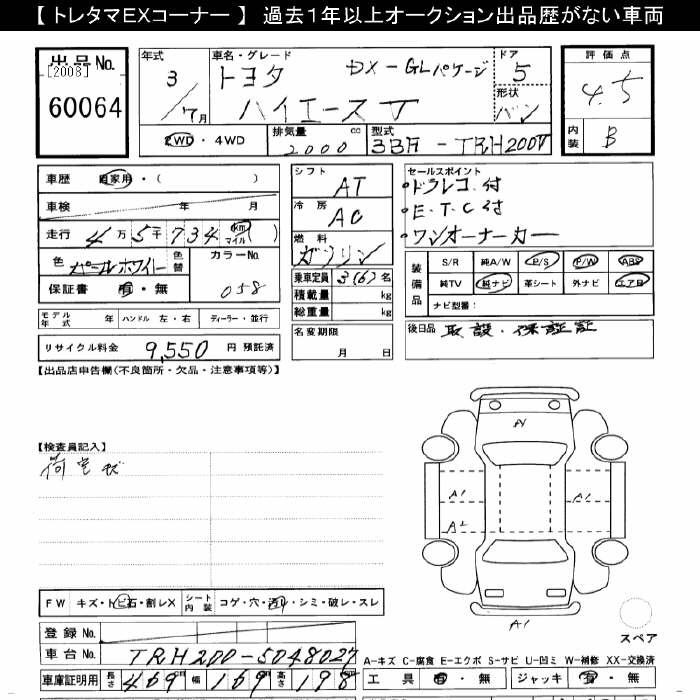 【 トレタマEXコーナー 】 過去1年以上オークション出品歴がない車両
出品No.
[2008]
60064
年式
3
/7月
車名・グレード
トヨタ DX-GLパッケージ
ハイエースV
ドア
5
形状
バン
評価点
4.5
内装
B
2WD ・ 4WD
排気量
2000 cc
型式
3BF-TRH200V
車歴 自家用・( )
車検 年 月
走行 4万5千734 (km マイル)
色 パールホワイト 色替 カラーNo. 058
保証書 有・無
シフト
AT
冷房
AC
燃料
ガソリン
セールスポイント
・ドラレコ付
・E・T・C付
・ワンオーナーカー
乗車定員 3(6)名
積載量 kg
総重量 kg
装備品
S/R 純A/W P/S P/W ABS
純TV 純ナビ 革シート 外ナビ エア目
ナビ型番:
モデル年式 年 ハンドル 左・右 ディーラー・並行
名変期限
月 日
後日品 取説・保証証
リサイクル料金 9,550 円 預託済
【出品店申告欄(不良箇所・欠品・注意事項等)】
【検査員記入】
荷室キズ
A1
A1
A1
A2
A1
スペア
FW キズ・トビ石・割レX シート内装 コゲ・穴・汚レ・シミ・破レ・スレ
登録No.
車台No. TRH200-5048027
車庫証明用 長さ 469 幅 169 高さ 198
A-キズ C-腐食 E-エクボ S-サビ U-凹ミ W-補修 XX-交換済
工具 有・無 ジャッキ 有・無